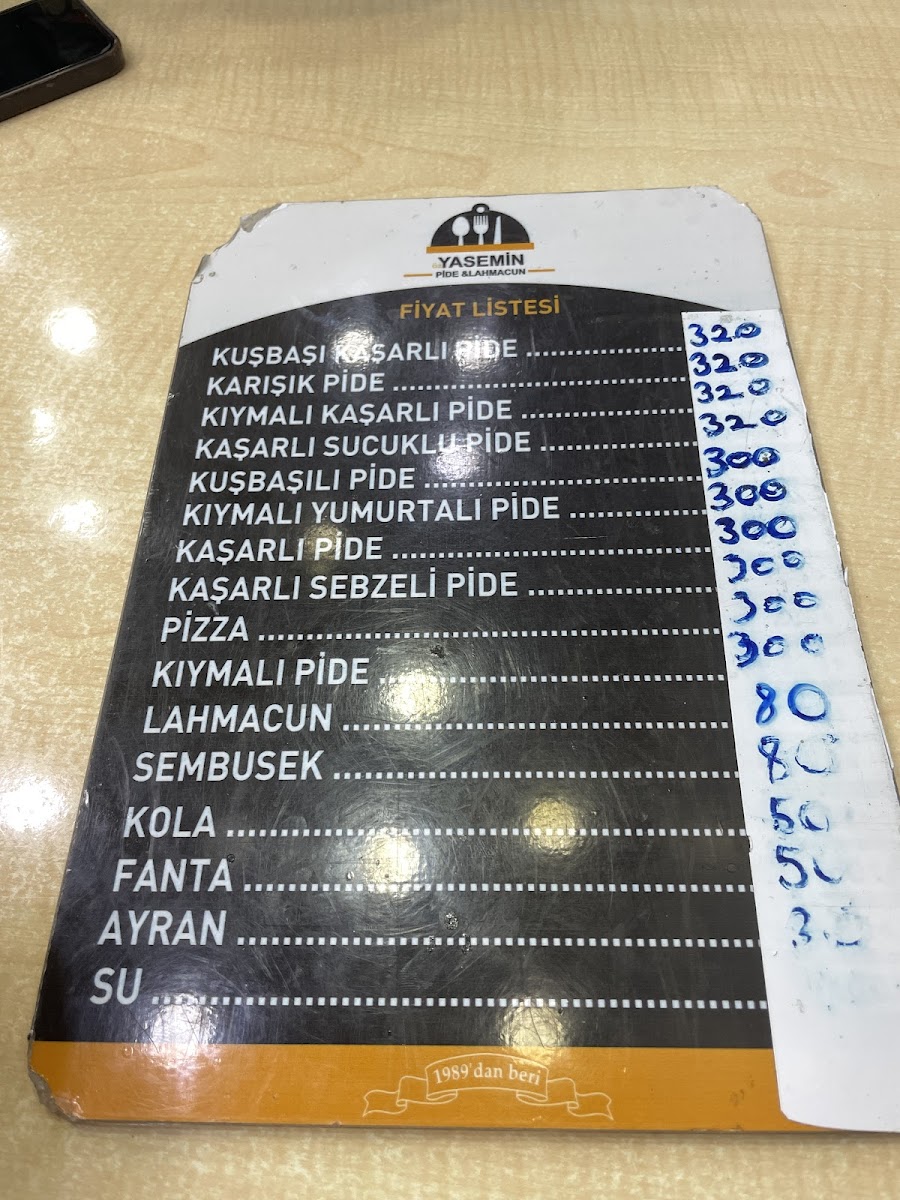 YASEMİN
PİDE & LAHMACUN
FİYAT LİSTESİ
KUŞBAŞI KAŞARLI PİDE ........................ 320
KARIŞIK PİDE ........................ 320
KIYMALI KAŞARLI PİDE ........................ 320
KAŞARLI SUCUKLU PİDE ........................ 320
KUŞBAŞILI PİDE ........................ 300
KIYMALI YUMURTALI PİDE ........................ 300
KAŞARLI PİDE ........................ 300
KAŞARLI SEBZELİ PİDE ........................ 300
PİZZA ........................ 300
KIYMALI PİDE ........................ 300
LAHMACUN ........................ 80
SEMBUSEK ........................ 80
KOLA ........................ 50
FANTA ........................ 50
AYRAN ........................ 30
SU ........................
1989'dan beri